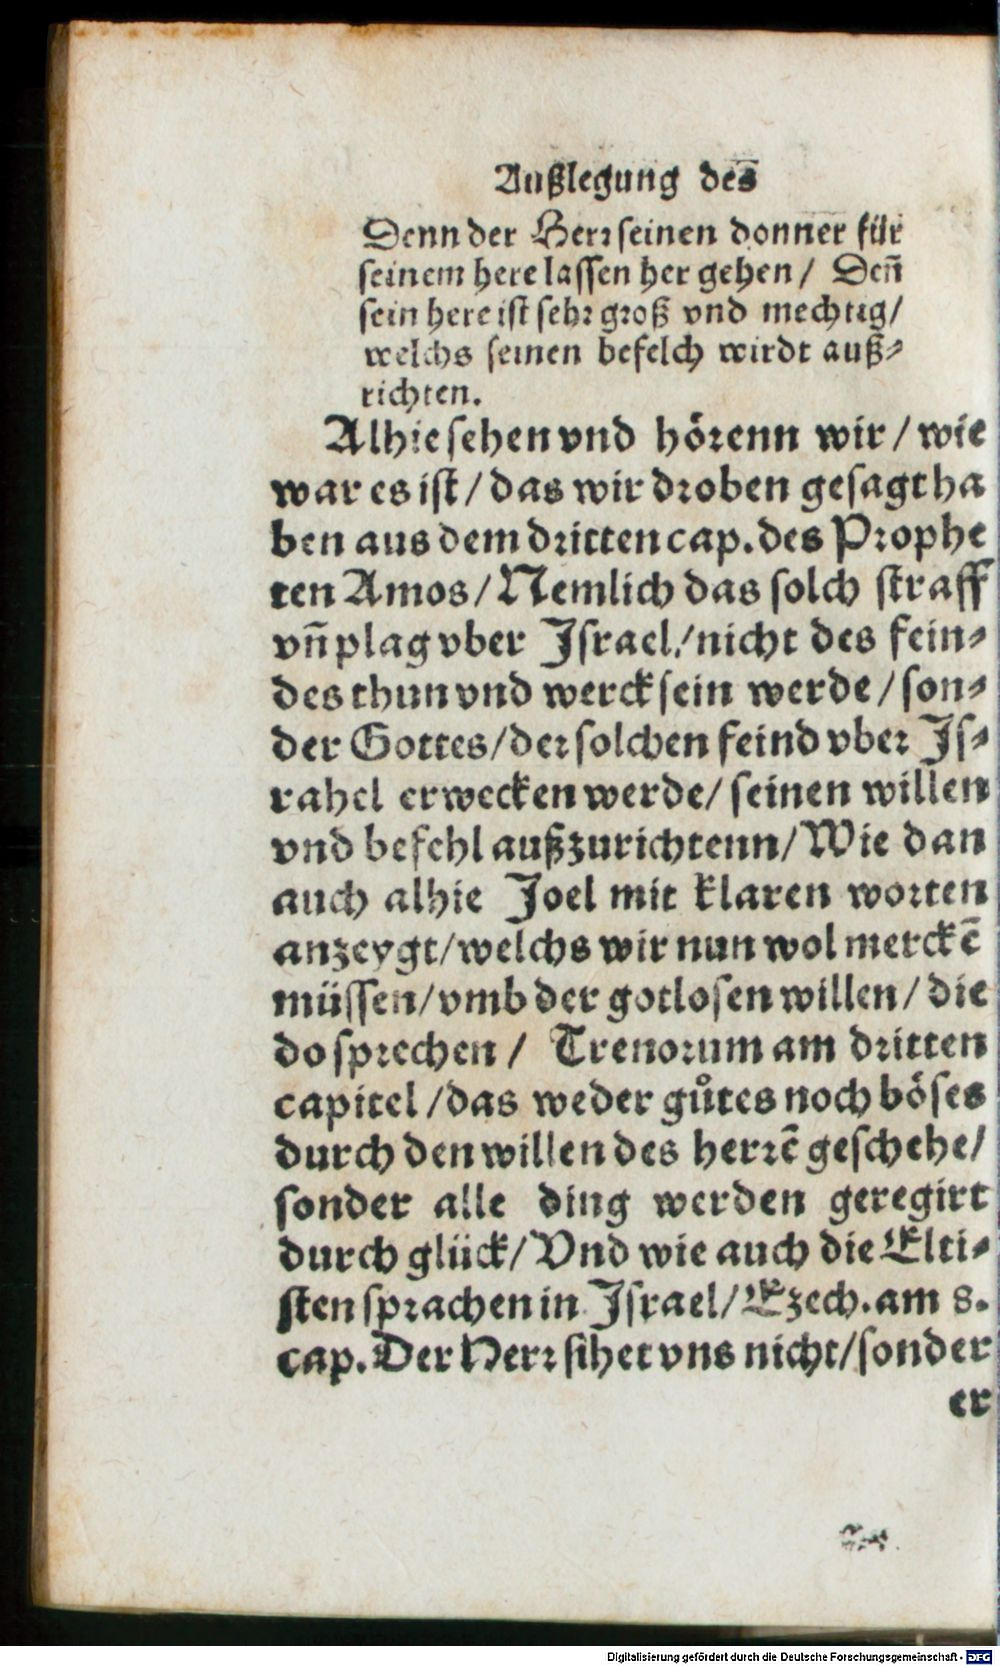 Außlegung des
Denn der Herr seinen donner für
seinem here lassen her gehen / Deñ
sein here ist sehr groß vnd mechtig /
welchs seinen befelch wirdt auß⸗
richten.
Alhie sehen vnd hörenn wir / wie
war es ist / das wir droben gesagt ha
ben aus dem dritten cap. des Prophe
ten Amos / Nemlich das solch straff
vñ plag vber Israel / nicht des fein⸗
des thun vnd werck sein werde / son⸗
der Gottes / der solchen feind vber Is⸗
rahel erwecken werde / seinen willen
vnd befehl außzurichtenn / Wie dan
auch alhie Joel mit klaren worten
anzeygt / welchs wir nun wol merckē
müssen / vmb der gotlosen willen / die
do sprechen / Trenorum am dritten
capitel / das weder gůtes noch böses
durch den willen des herrē geschehe /
sonder alle ding werden geregirt
durch glück / Vnd wie auch die Elti⸗
sten sprachen in Israel / Ezech. am 8.
cap. Der Herr sihet vns nicht / sonder
er
Digitalisierung gefördert durch die Deutsche Forschungsgemeinschaft - DFG